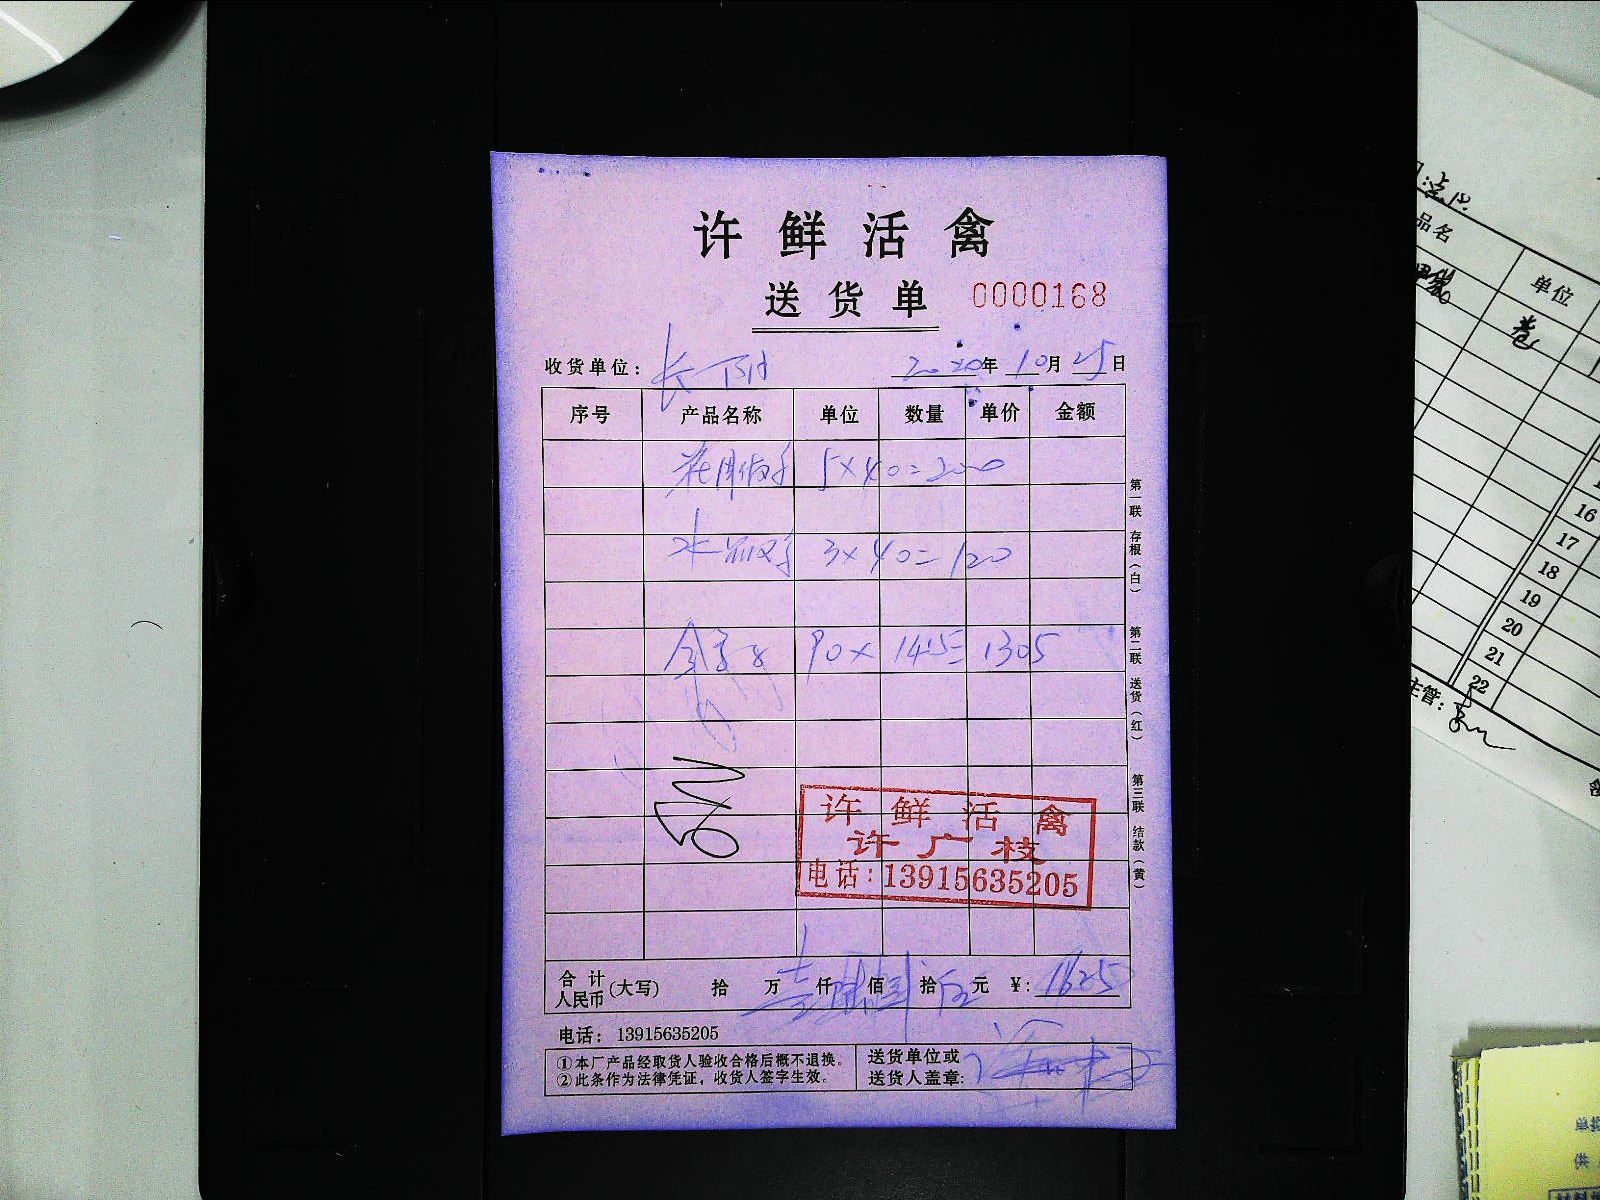 许鲜活禽
送货单 0000168
收货单位: 长 2020年10月25日
序号 产品名称 单位 数量 单价 金额
5×40=200
水 3×40=120
90×14.5=1305
第一联 存根(白)
第二联 送货(红)
第三联 结款(黄)
许鲜活禽
许广枝
电话:13915635205
合计人民币(大写) 拾 万 壹仟 佰 拾 元 ¥:1625
电话: 13915635205
①本厂产品经取货人验收合格后概不退换。
②此条作为法律凭证,收货人签字生效。
送货单位或
送货人盖章:
品名 单位
卷
16
17
18
19
20
21
22
主管: